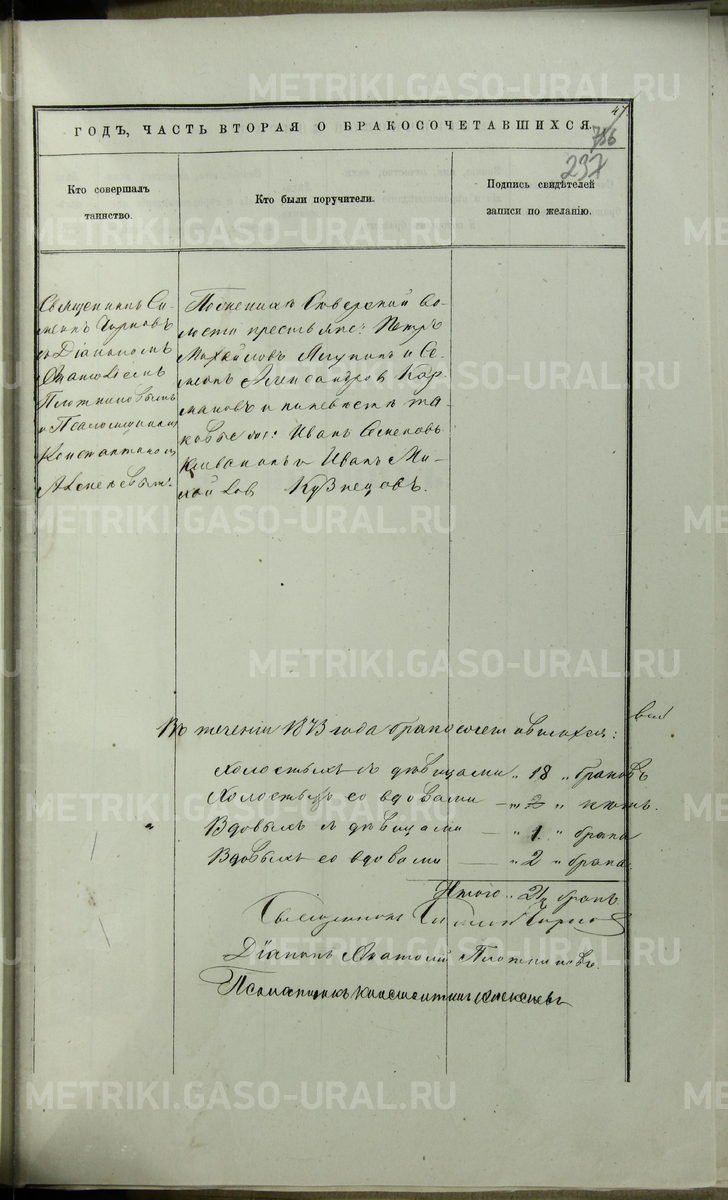 METRIKI.GASO-URAL.RU
47
ГОДЪ, ЧАСТЬ ВТОРАЯ О БРАКОСОЧЕТАВШИХСЯ.
786
237
Кто совершалъ
таинство.
Кто были поручители.
Подпись свидѣтелей
записи по желанію.
Священникъ Си-
меонъ Чирковъ
съ Діакономъ
Анатоліемъ
Плотниковымъ
и Псаломщикомъ
Константиномъ
Алексѣевымъ.
По женихѣ Сыверской Во-
лости крестьяне: Петръ
Михайловъ и Се-
менъ Александровъ Кар-
мановъ и по невѣстѣ та-
ковые же: Иванъ Семеновъ
и Иванъ Ми-
хайловъ Кузнецовъ.
Въ теченіи 1873 года бракосочетавшихся:
Холостыхъ съ дѣвицами „ 18 „ браковъ
Холостыхъ со вдовами — „ „ нѣтъ.
Вдовыхъ съ дѣвицами — „ 1 „ бракъ
Вдовыхъ со вдовами — „ 2 „ брака.
Итого „ 21 бракъ
Священникъ Симеонъ Чирковъ
Діаконъ Анатолій Плотниковъ.
Псаломщикъ Константинъ Алексѣевъ